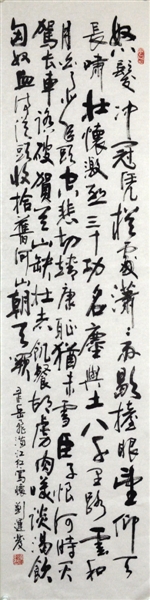 怒髮冲冠凭栏處蕭々雨歇擡眼望仰天
長嘯壮懷激烈三十功名塵與土八千里路雲和
月少年頭空悲切靖康恥猶未雪臣子恨何時灭
駕長車踏破賀兰山缺壮志飢餐胡虜肉笑談渴飲
匈奴血待從頭收拾舊河山朝天
岳飛满江红寫懷